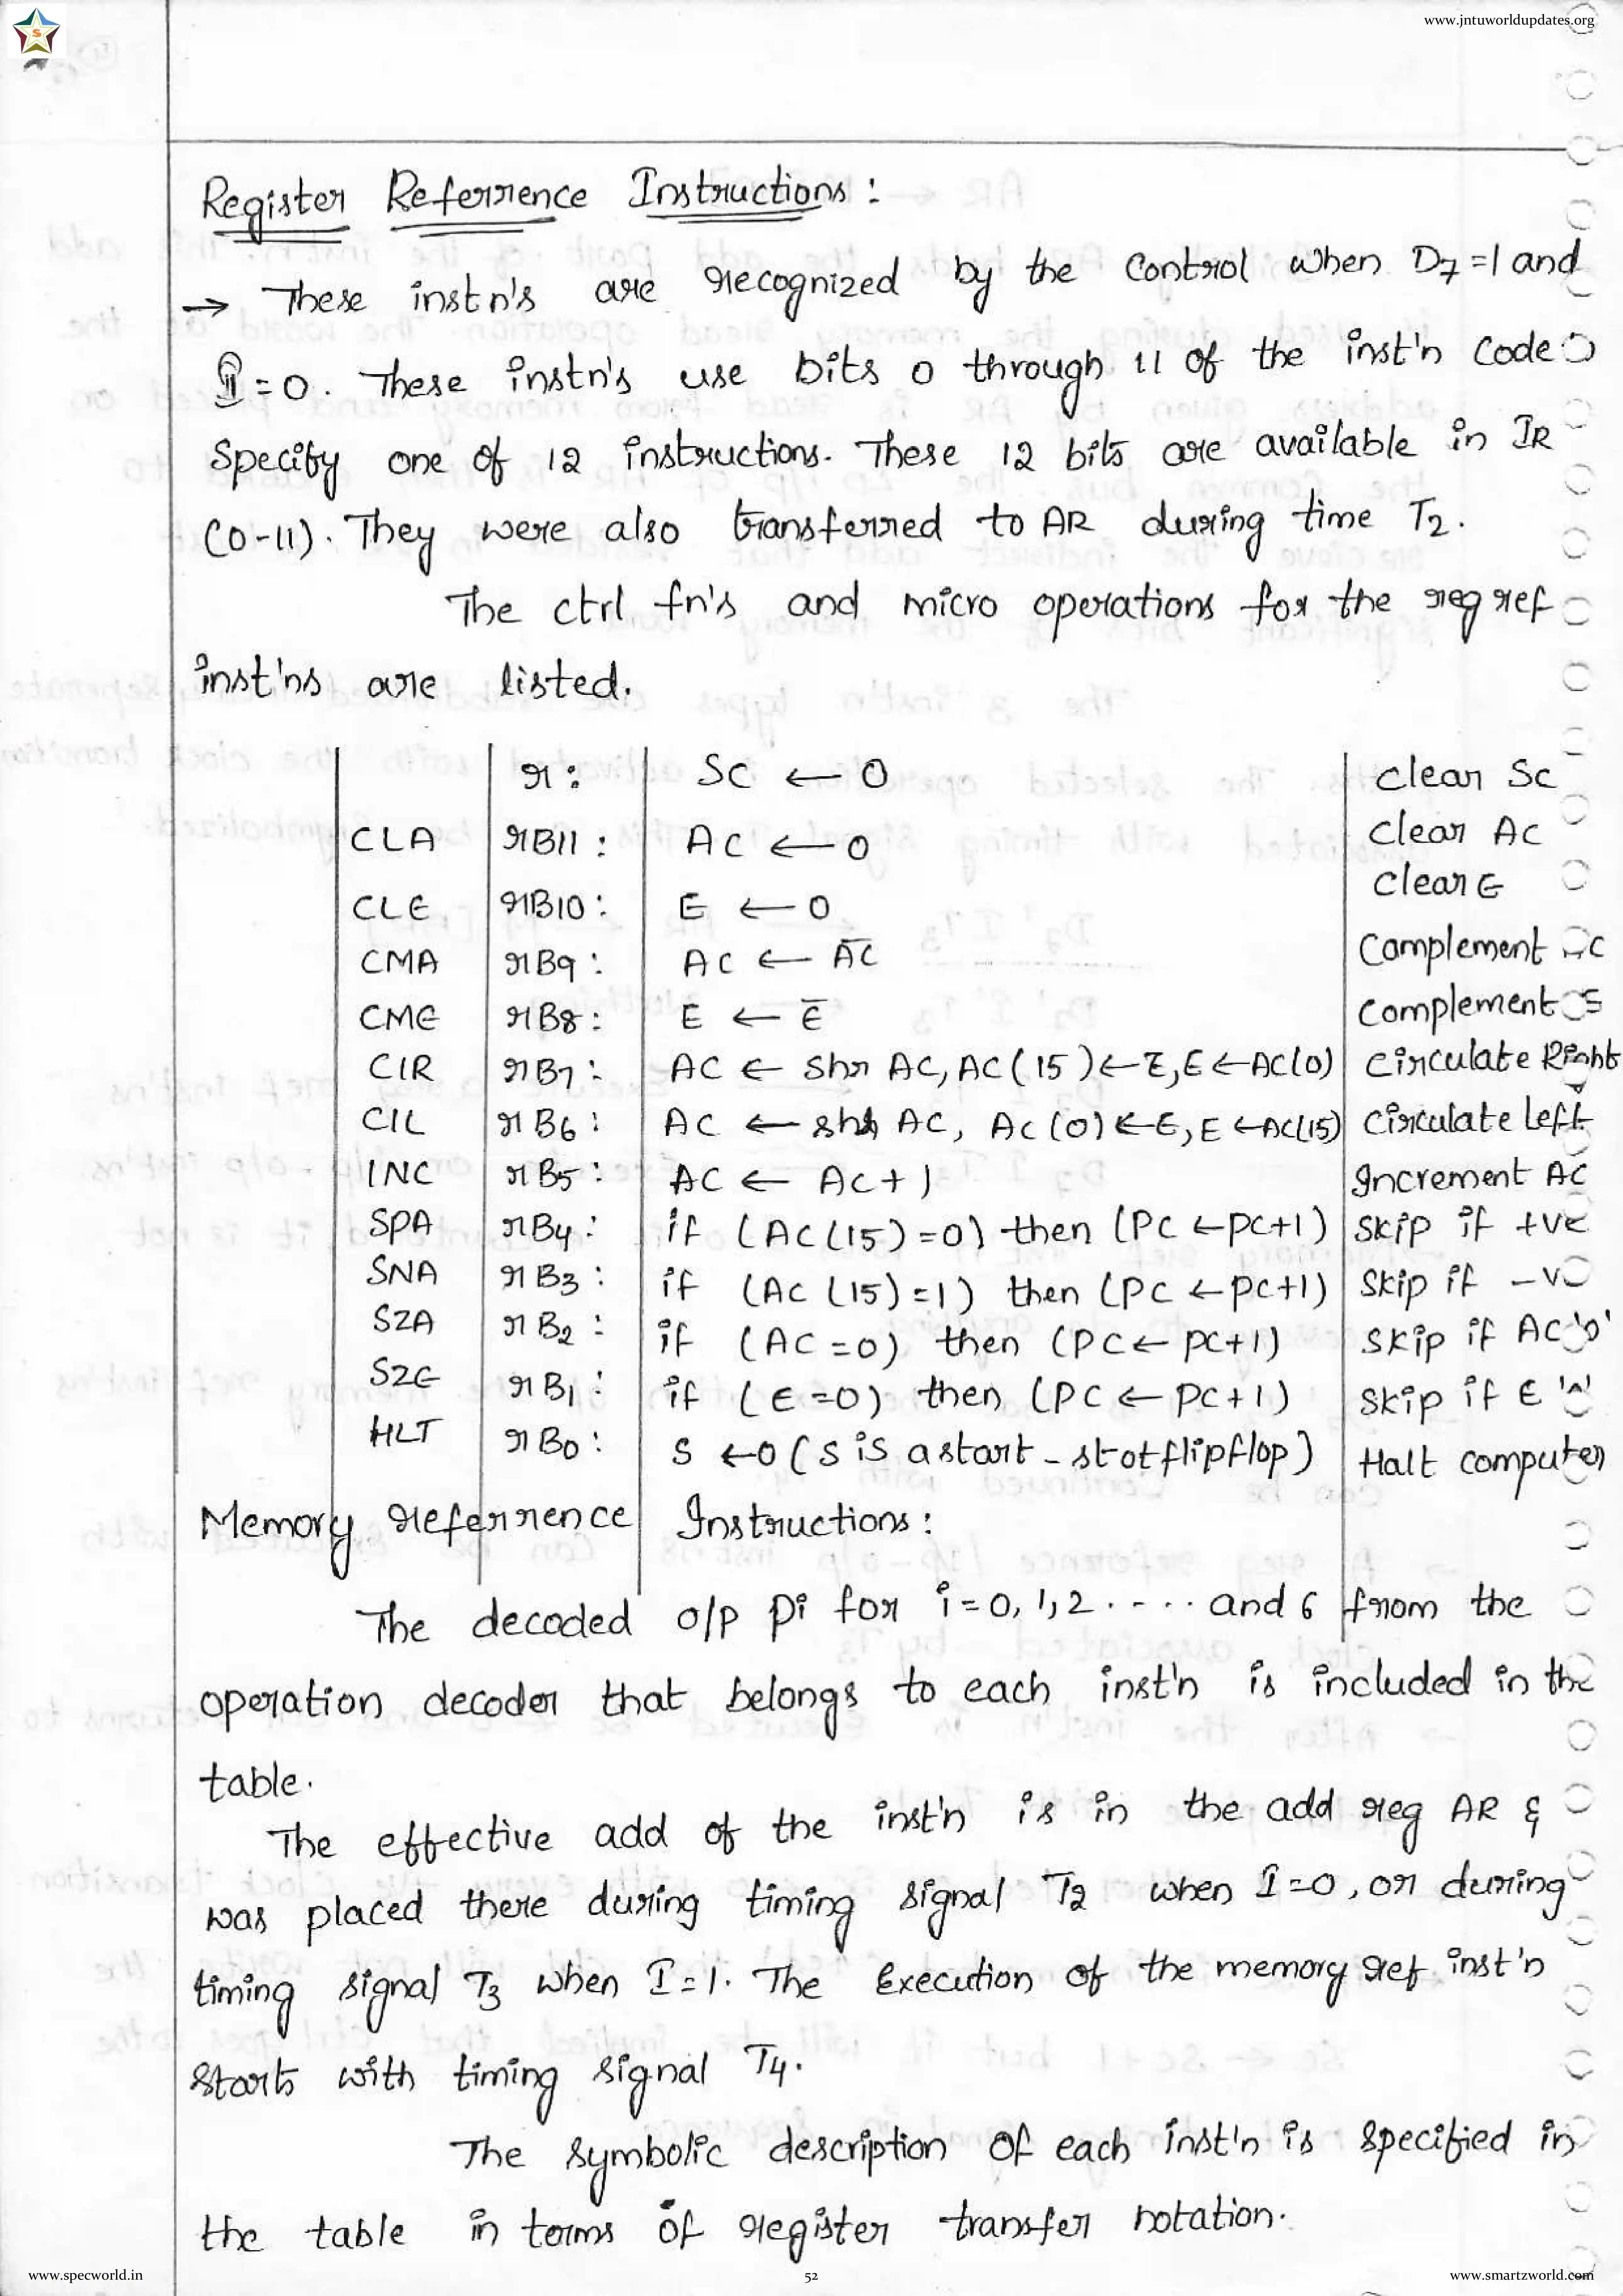 www.jntuworldupdates.org
S
Register Referrence Instructions :
→ These instn's are recognized by the control when D7 =1 and
I = 0. These instn's use bits 0 through 11 of the inst'n code
Specify one of 12 instructions. These 12 bits are available in IR
(0-11). They were also transferred to AR during time T2.
The ctrl fn's and micro operations for the reg ref
inst'ns are listed.
r : SC ← 0 clear SC
CLA rB11 : AC ← 0 Clear AC
CLE rB10 : E ← 0 Clear E
CMA rB9 : AC ← A̅C̅ Complement AC
CME rB8 : E ← E̅ Complement E
CIR rB7 : AC ← Shr AC, AC(15) ← E, E ← AC(0) Circulate Right
CIL rB6 : AC ← AC, AC(0) ← E, E ← AC(15) Circulate Left
INC rB5 : AC ← AC+1 Increment AC
SPA rB4 : if (AC(15) = 0) then (PC ← PC+1) Skip if +ve
SNA rB3 : if (AC(15) = 1) then (PC ← PC+1) Skip if -v
SZA rB2 : if (AC = 0) then (PC ← PC+1) Skip if AC '0'
SZE rB1 : if (E = 0) then (PC ← PC+1) Skip if E
HLT rB0 : S ← 0 (S is a start - stot flipflop) Halt computer
Memory referrence Instructions :
The decoded o/p Pi for i = 0, 1, 2 . - . . and 6 from the
operation decoder that belongs to each inst'n is included in the
table.
The effective add of the inst'n is in the add reg AR &
was placed there during timing signal T2 when I = 0, or during
timing signal T3 when I = 1. The Execution of the memory ref inst'n
Starts with timing signal T4.
The symbolic description of each inst'n is specified in
the table in terms of register transfer notation.
www.specworld.in 52 www.smartzworld.com